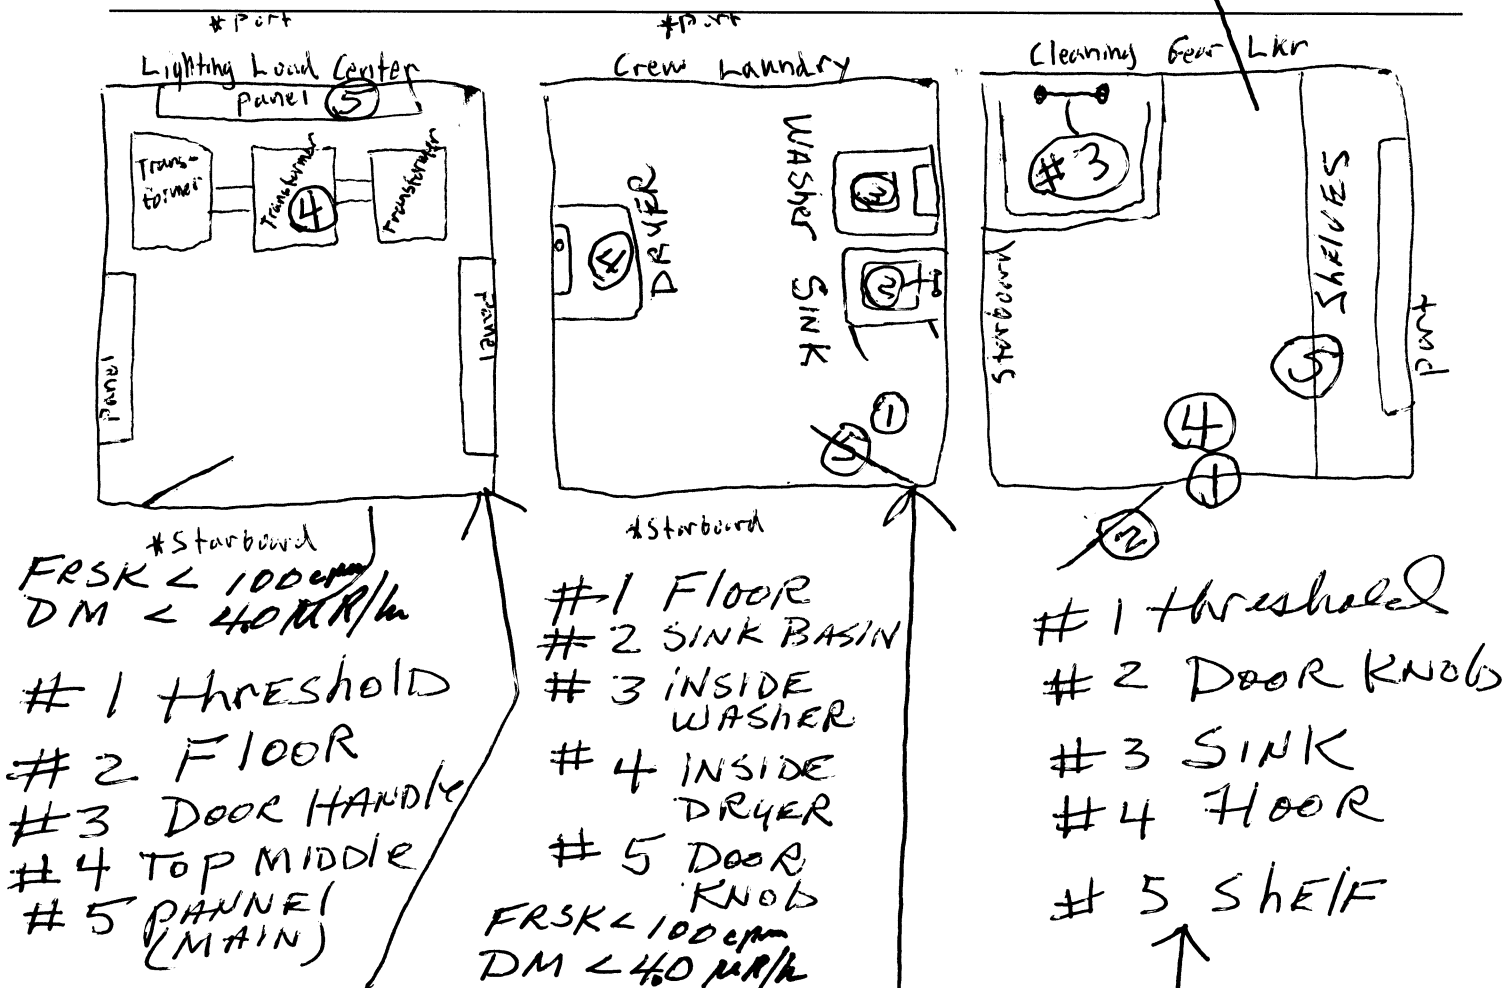 *Port
Lighting Load Center
panel 5
Trans-
former
Transformer
4
Transformer
Panel
Panel
*Starboard
FRSK < 100 cpm
DM < 4.0 µR/h
#1 thrEShOLD
#2 FlOOR
#3 DOOR HANDle
#4 TOP MIDDlE
#5 PANNEl
(MAIN)
*Port
Crew Laundry
WASher
3
DRYER
4
SINK
2
1
5
*Starboard
#1 FlOOR
#2 SINK BASIN
#3 INSIDE
WASHER
#4 INSIDE
DRYER
#5 DOOR
KNOb
FRSK < 100 cpm
DM < 4.0 µR/h
Cleaning Gear Lkr
#3
Starboard
ShElVES
Port
5
4
1
2
#1 threshold
#2 DOOR KNOb
#3 SINK
#4 FlOOR
#5 ShElF